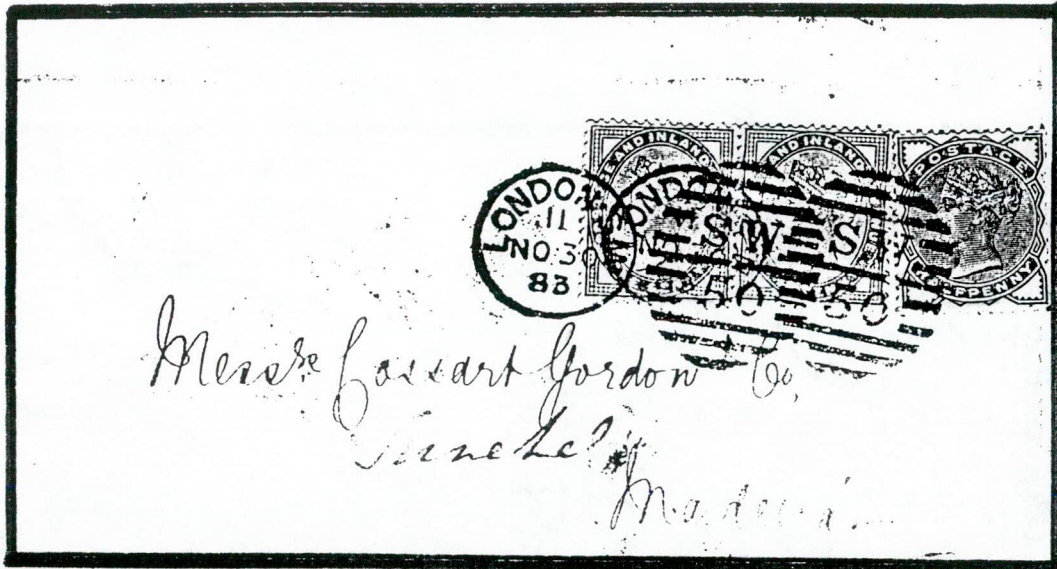 E AND INLAND
AND INLAND
POSTAGE
HALFPENNY
LONDON
11
NO 30
83
LONDON
S W
S
50
50
Messrs Cossart Gordon & Co,
Funchal
Madeira